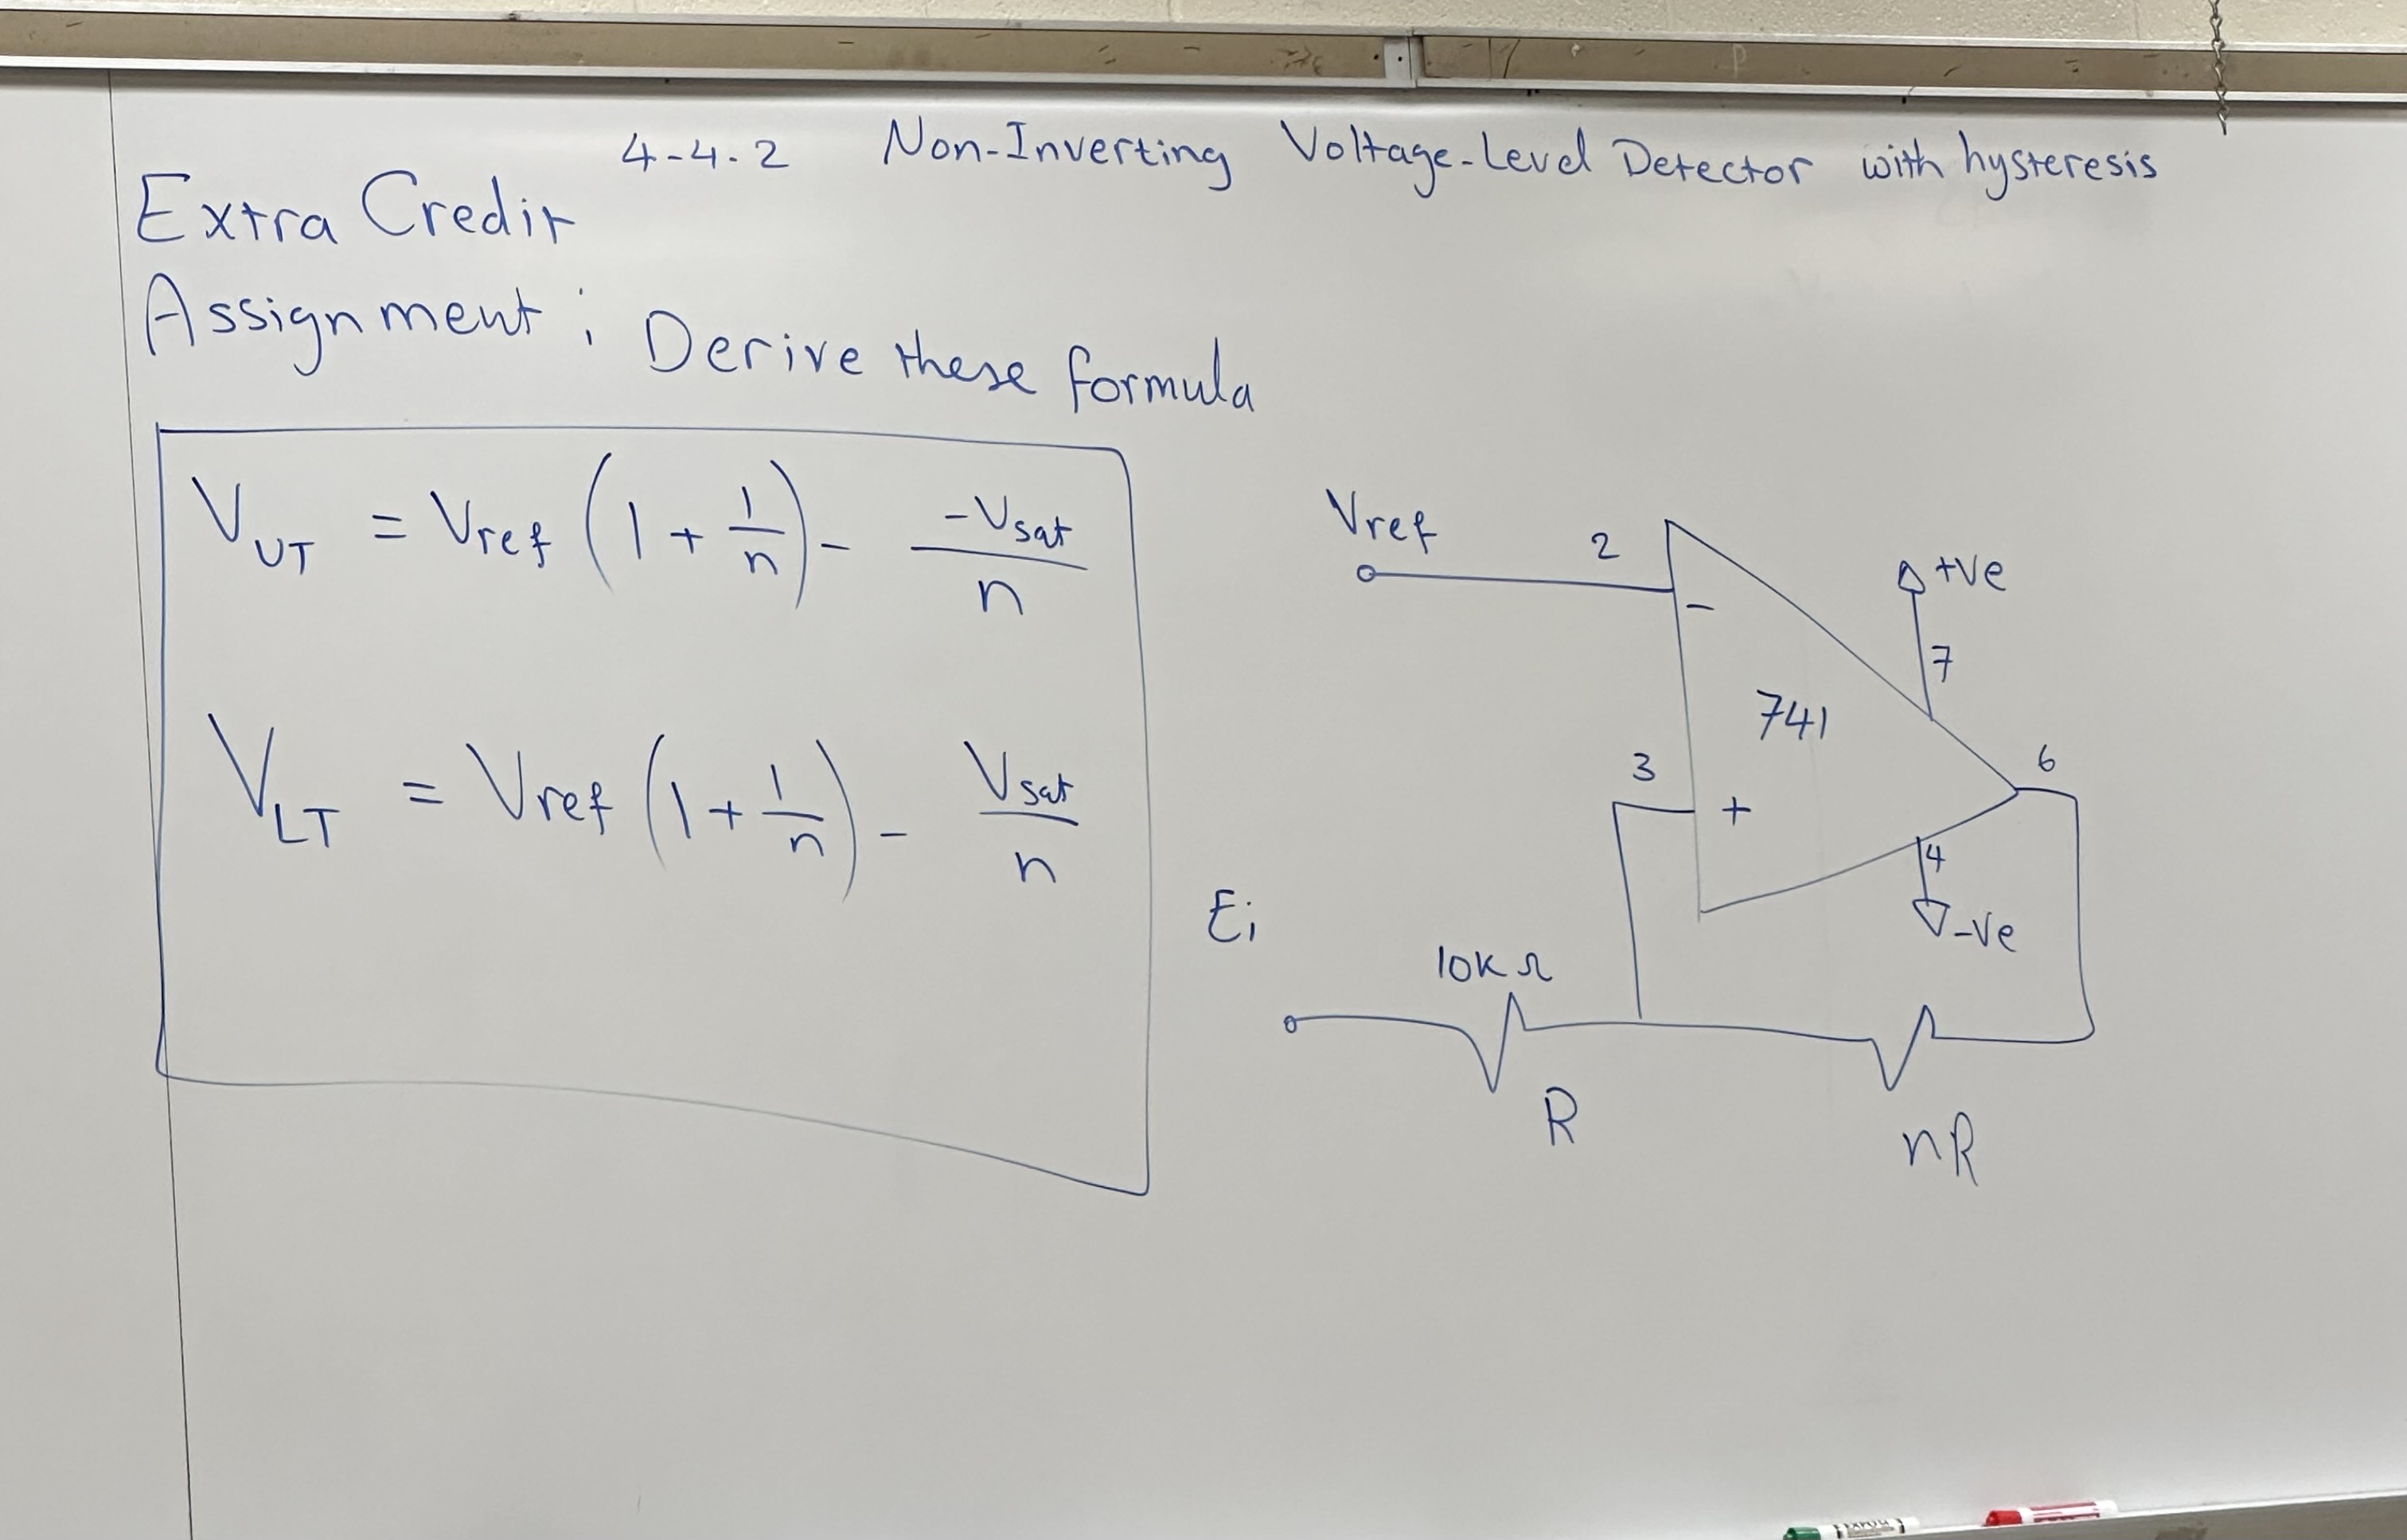 4-4.2 Non-Inverting Voltage-Level Detector with hysteresis
Extra Credit
Assignment: Derive these formula
V_UT = Vref (1 + 1/n) - -Vsat/n
V_LT = Vref (1 + 1/n) - Vsat/n
Vref
2
-
+Ve
7
741
3
+
6
4
-Ve
Ei
10KΩ
R
nR
EXPO